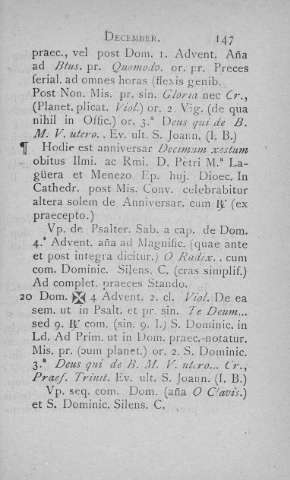 DECEMBER. 147
praec., vel post Dom. 1. Advent. Aña
ad Btus. pr. Quomodo. or. pr. Preces
ferial. ad omnes horas (flexis genib.
Post Non. Mis. pr. sin. Gloria nec Cr.,
(Planet. plicat. Viol.) or. 2. Vig. (de qua
nihil in Offic.) or. 3.ª Deus qui de B.
M. V. utero.. Ev. ult. S. Joann. (I. B.)
¶ Hodie est anniversar Decimum xextum
obitus Ilmi. ac Rmi. D. Petri M.ª La-
güera et Menezo Ep. huj. Dioec. In
Cathedr. post Mis. Conv. celebrabitur
altera solem de Anniversar. cum ℟ (ex
praecepto.)
Vp. de Psalter. Sab. a cap. de Dom.
4.ª Advent. aña ad Magnific. (quae ante
et post integra dicitur.) O Radix.. cum
com. Dominic. Silens. C. (cras simplif.)
Ad complet. praeces Stando.
20 Dom. ✠ 4 Advent. 2. cl. Viol. De ea
sem. ut in Psalt. et pr. sin. Te Deum...
sed 9. ℟ com. (sin. 9. l.) S. Dominic. in
Ld. Ad Prim. ut in Dom. praec.-notatur.
Mis. pr. (cum planet.) or. 2. S. Dominic.
3.ª Deus qui de B. M. V. utero... Cr.,
Praef. Trinit. Ev. ult. S. Joann. (I. B.)
Vp. seq. com. Dom. (aña O Clavis.)
et S. Dominic. Silens. C.